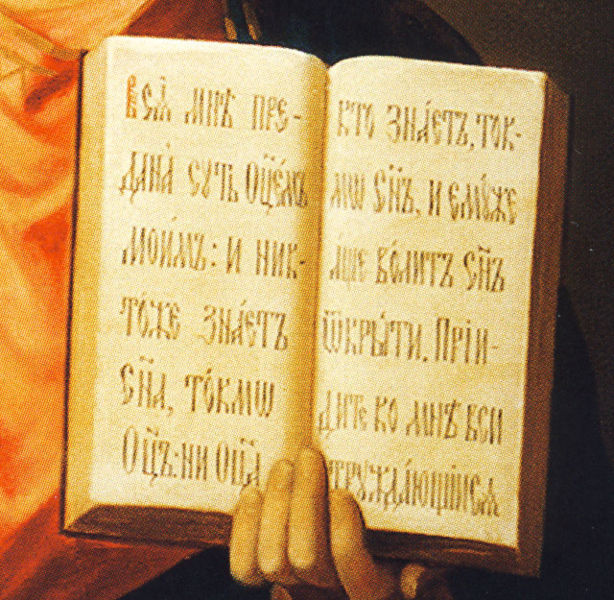 всѧ̑ мнѣ̀ пре-
дана̀ сꙋть Оц҃е́мъ
мои́мъ: и ник-
то́же зна́етъ
Сн҃а, то́кмѡ
Оц҃ъ: ни Оц҃а̀
кто зна́етъ, ток-
мѡ Сн҃ъ, и емꙋ́же
а́ще во́литъ Сн҃ъ
ѿкры́ти. Прїи-
дите ко мнѣ̀ вси
трꙋжда́ющїисѧ